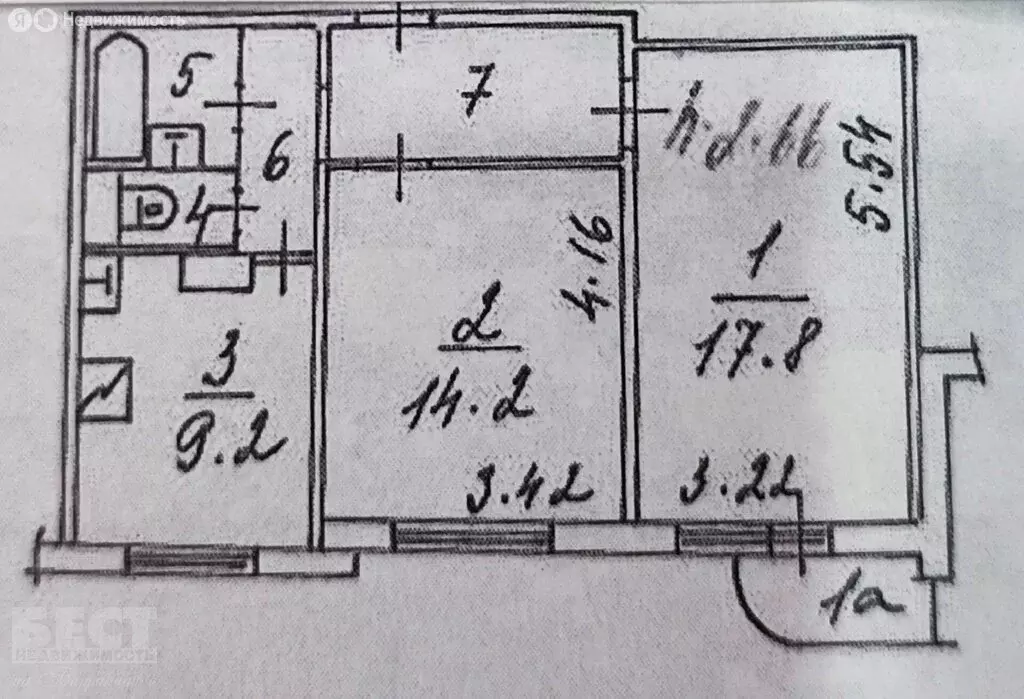 Я Недвижимость
5
7
6
h-2.66
5.54
4
4.16
1
17.8
2
14.2
3
9.2
3.42
3.22
1а
БЕСТ
НЕДВИЖИМОСТЬ